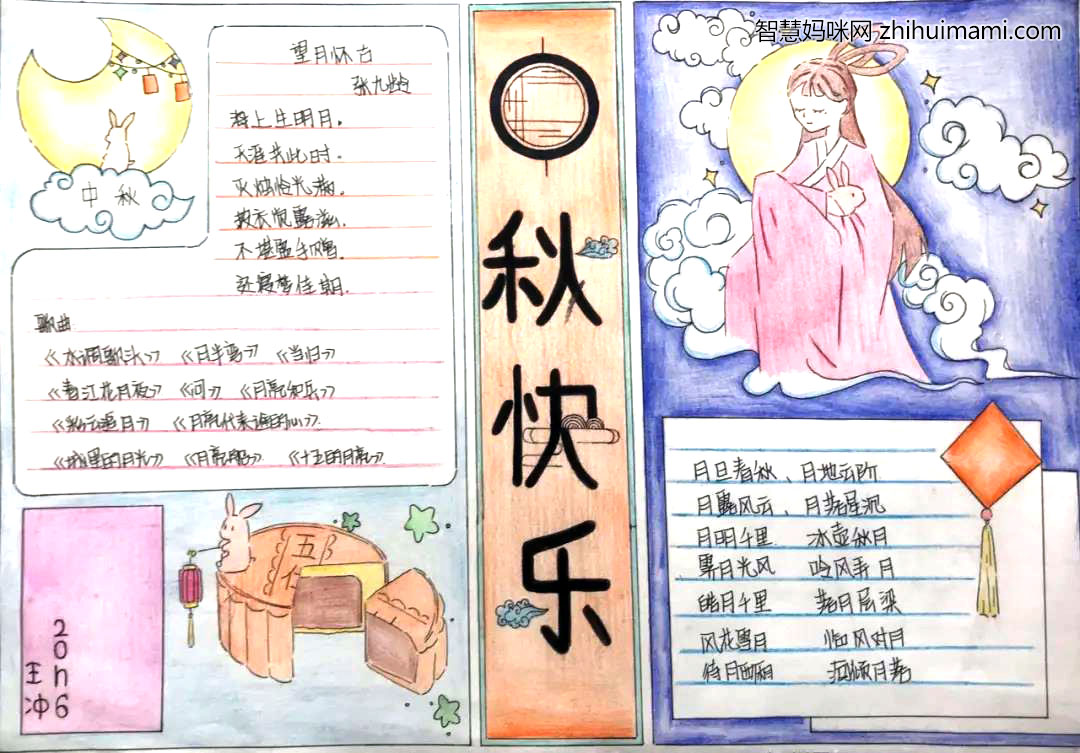 智慧妈咪网 zhihuimami.com
中秋
望月怀古
张九龄
海上生明月。
天涯共此时.
灭烛怜光满.
披衣觉露滋.
不堪盈手赠.
还寝梦佳期.
歌曲
《水调歌头》 《月半弯》 《当归》
《春江花月夜》 《问》
《彩云追月》
《城里的月光》 《十五的月亮》
五仁
王冲
秋快乐
月旦春秋、月地云阶
月露风云、月落星沉
月明千里 冰壶秋月
霁月光风 吟风弄月
皓月千里 落月屋梁
风花雪月 临风对月
待月西厢